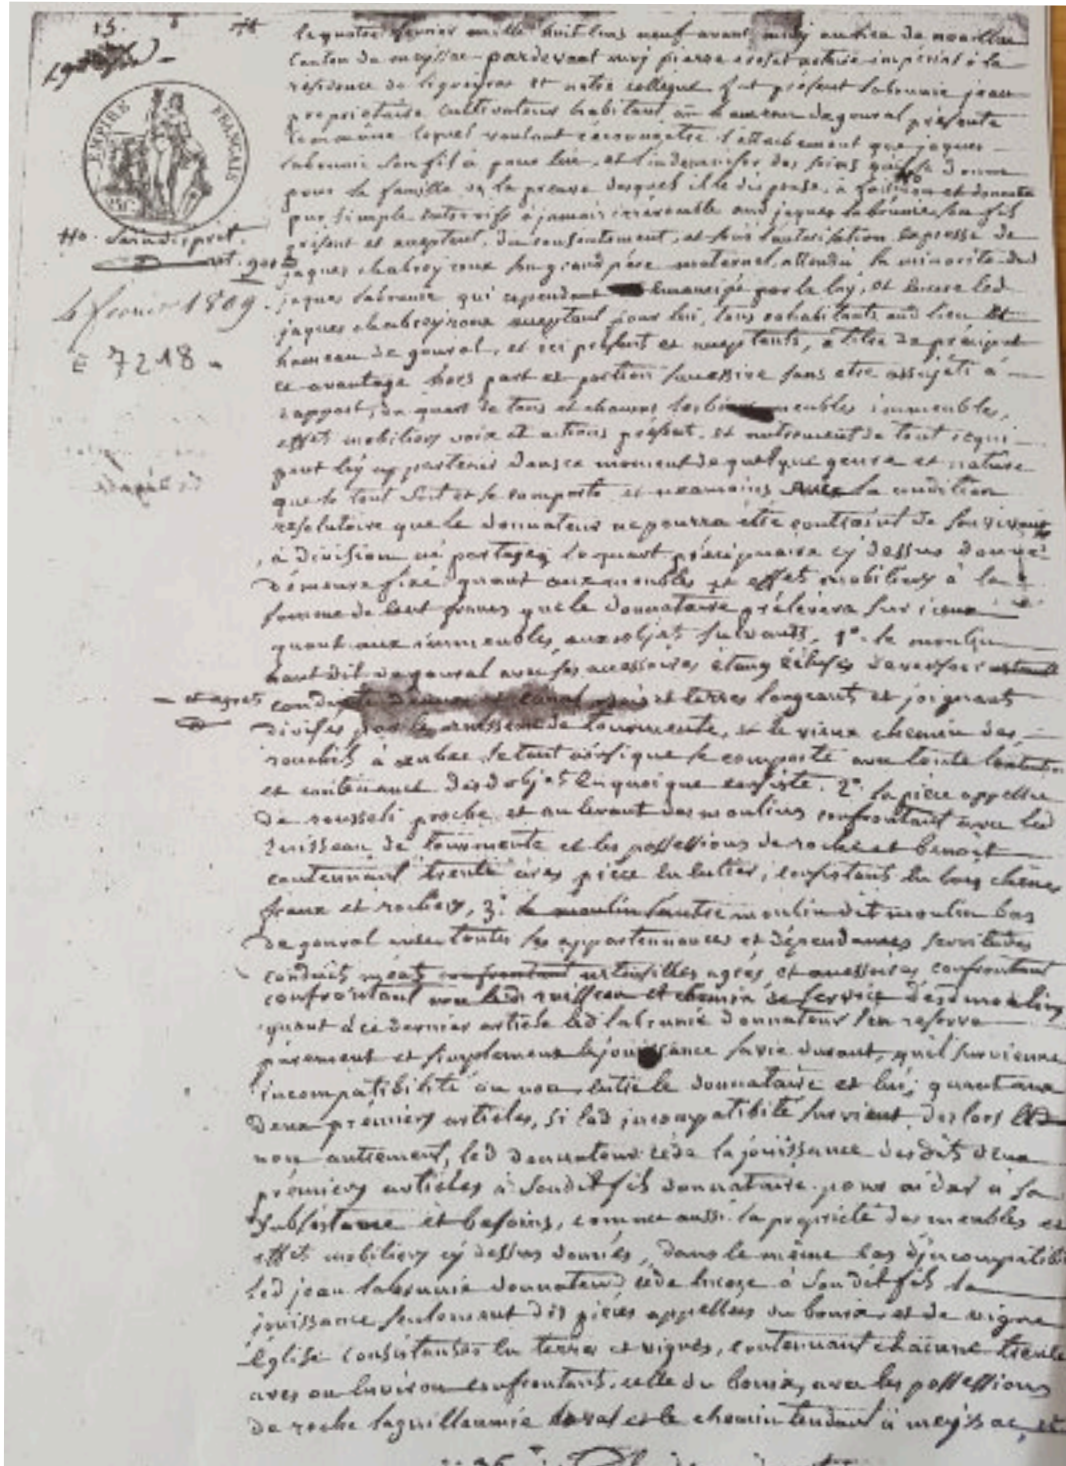 15.
EMPIRE FRANÇAIS
25 C.
4 fevrier 1809.
E 7218
le quatre fevrier mille huit cens neuf avant midy au lieu de noailhac
canton de meyssac pardevant moy pierre notaire impérial à la
residence de ligneyrac et notre collegue fut présent labrunie jean
propriétaire cultivateur habitant au hameau de gouval présente
commune lequel voulant reconnaitre l'attachement que jaques
labrunie son fils a pour lui, et l'indemniser des soins qu'il se donne
pour la famille de la preuve desquels il le dispense, a fait donation
pure, simple entrevifs à jamais irrévocable aud jaques labrunie son fils
présent et acceptant, du consentement, et sous l'autorisation expresse de
jaques chabreyroux son grand père maternel, attendu la minorité dud
jaques labrunie qui cependant émancipé par la loy, et encore led
jaques chabreyroux acceptant pour lui, tous cohabitants aud lieu
hameau de gouval, et ici présent et acceptants, a titre de préciput
et avantage hors part et portion sans etre assujeti à
rapport, du quart de tous et chacuns ses biens meubles immeubles,
effets mobiliers voix et actions présent, et autrement de tout ce qui
peut luy appartenir dans ce moment de quelque genre et nature
que le tout soit et se comporte, et neamoins la condition
resolutoire que le donnateur ne pourra être contraint de son vivant
à division ni partage, le quart préciputaire cy dessus donné
demeure fixé quant aux meubles et effets mobiliers à la
somme de cent francs que le donnataire prélèvera sur iceux
quant aux immeubles, aux objets suivants, 1° le moulin
haut dit de gouval avec ses accessoires étang écluses
et agrets
conduite et terres longeants et joignant
divisés par le ruisseau de tourmente, et le vieux chemin des
à le tout ainsi que se comporte avec toute
et contenance desd objets en quoi que consiste. 2° la piece appellée
de rousseli proche et au levant des moulins confrontant avec led
ruisseau de tourmente et les possessions de roche et benoit
contennant trente ares piece en entier, consistant en bois chênes
fraux et rochers, 3° l'autre moulin dit moulin bas
de gouval avec toutes ses appartennances et dépendances servitudes
conduits ustensilles agrés, et accessoires confrontant
confrontant avec led ruisseau et chemin de service desd moulins
quant à ce dernier article led labrunie donnateur s'en reserve
purement et simplement la jouissance sa vie durant, qu'il survienne
incompatibilité ou non, entre le donnataire et lui; quant aux
deux premiers articles, si lad incompatibité survient, des lors
non autrement, led donnateur cède la jouissance desdits deux
premiers articles à sondit fils donnataire pour aider à sa
subsistance et besoins, comme aussi la propriété des meubles et
effets mobiliers cy dessus donnés, dans le même cas d'incompatibi
led jean labrunie donnateur cède encore à son dit fils la
jouissance seulement des pieces appellées du bouix et de vigne
église consistantes en terres et vignes, contenuant chacune trente
ares ou environ confrontant, celle du bouix, avec les possessions
de roche laguillaumie laval et le chemin tendant à meyssac, et